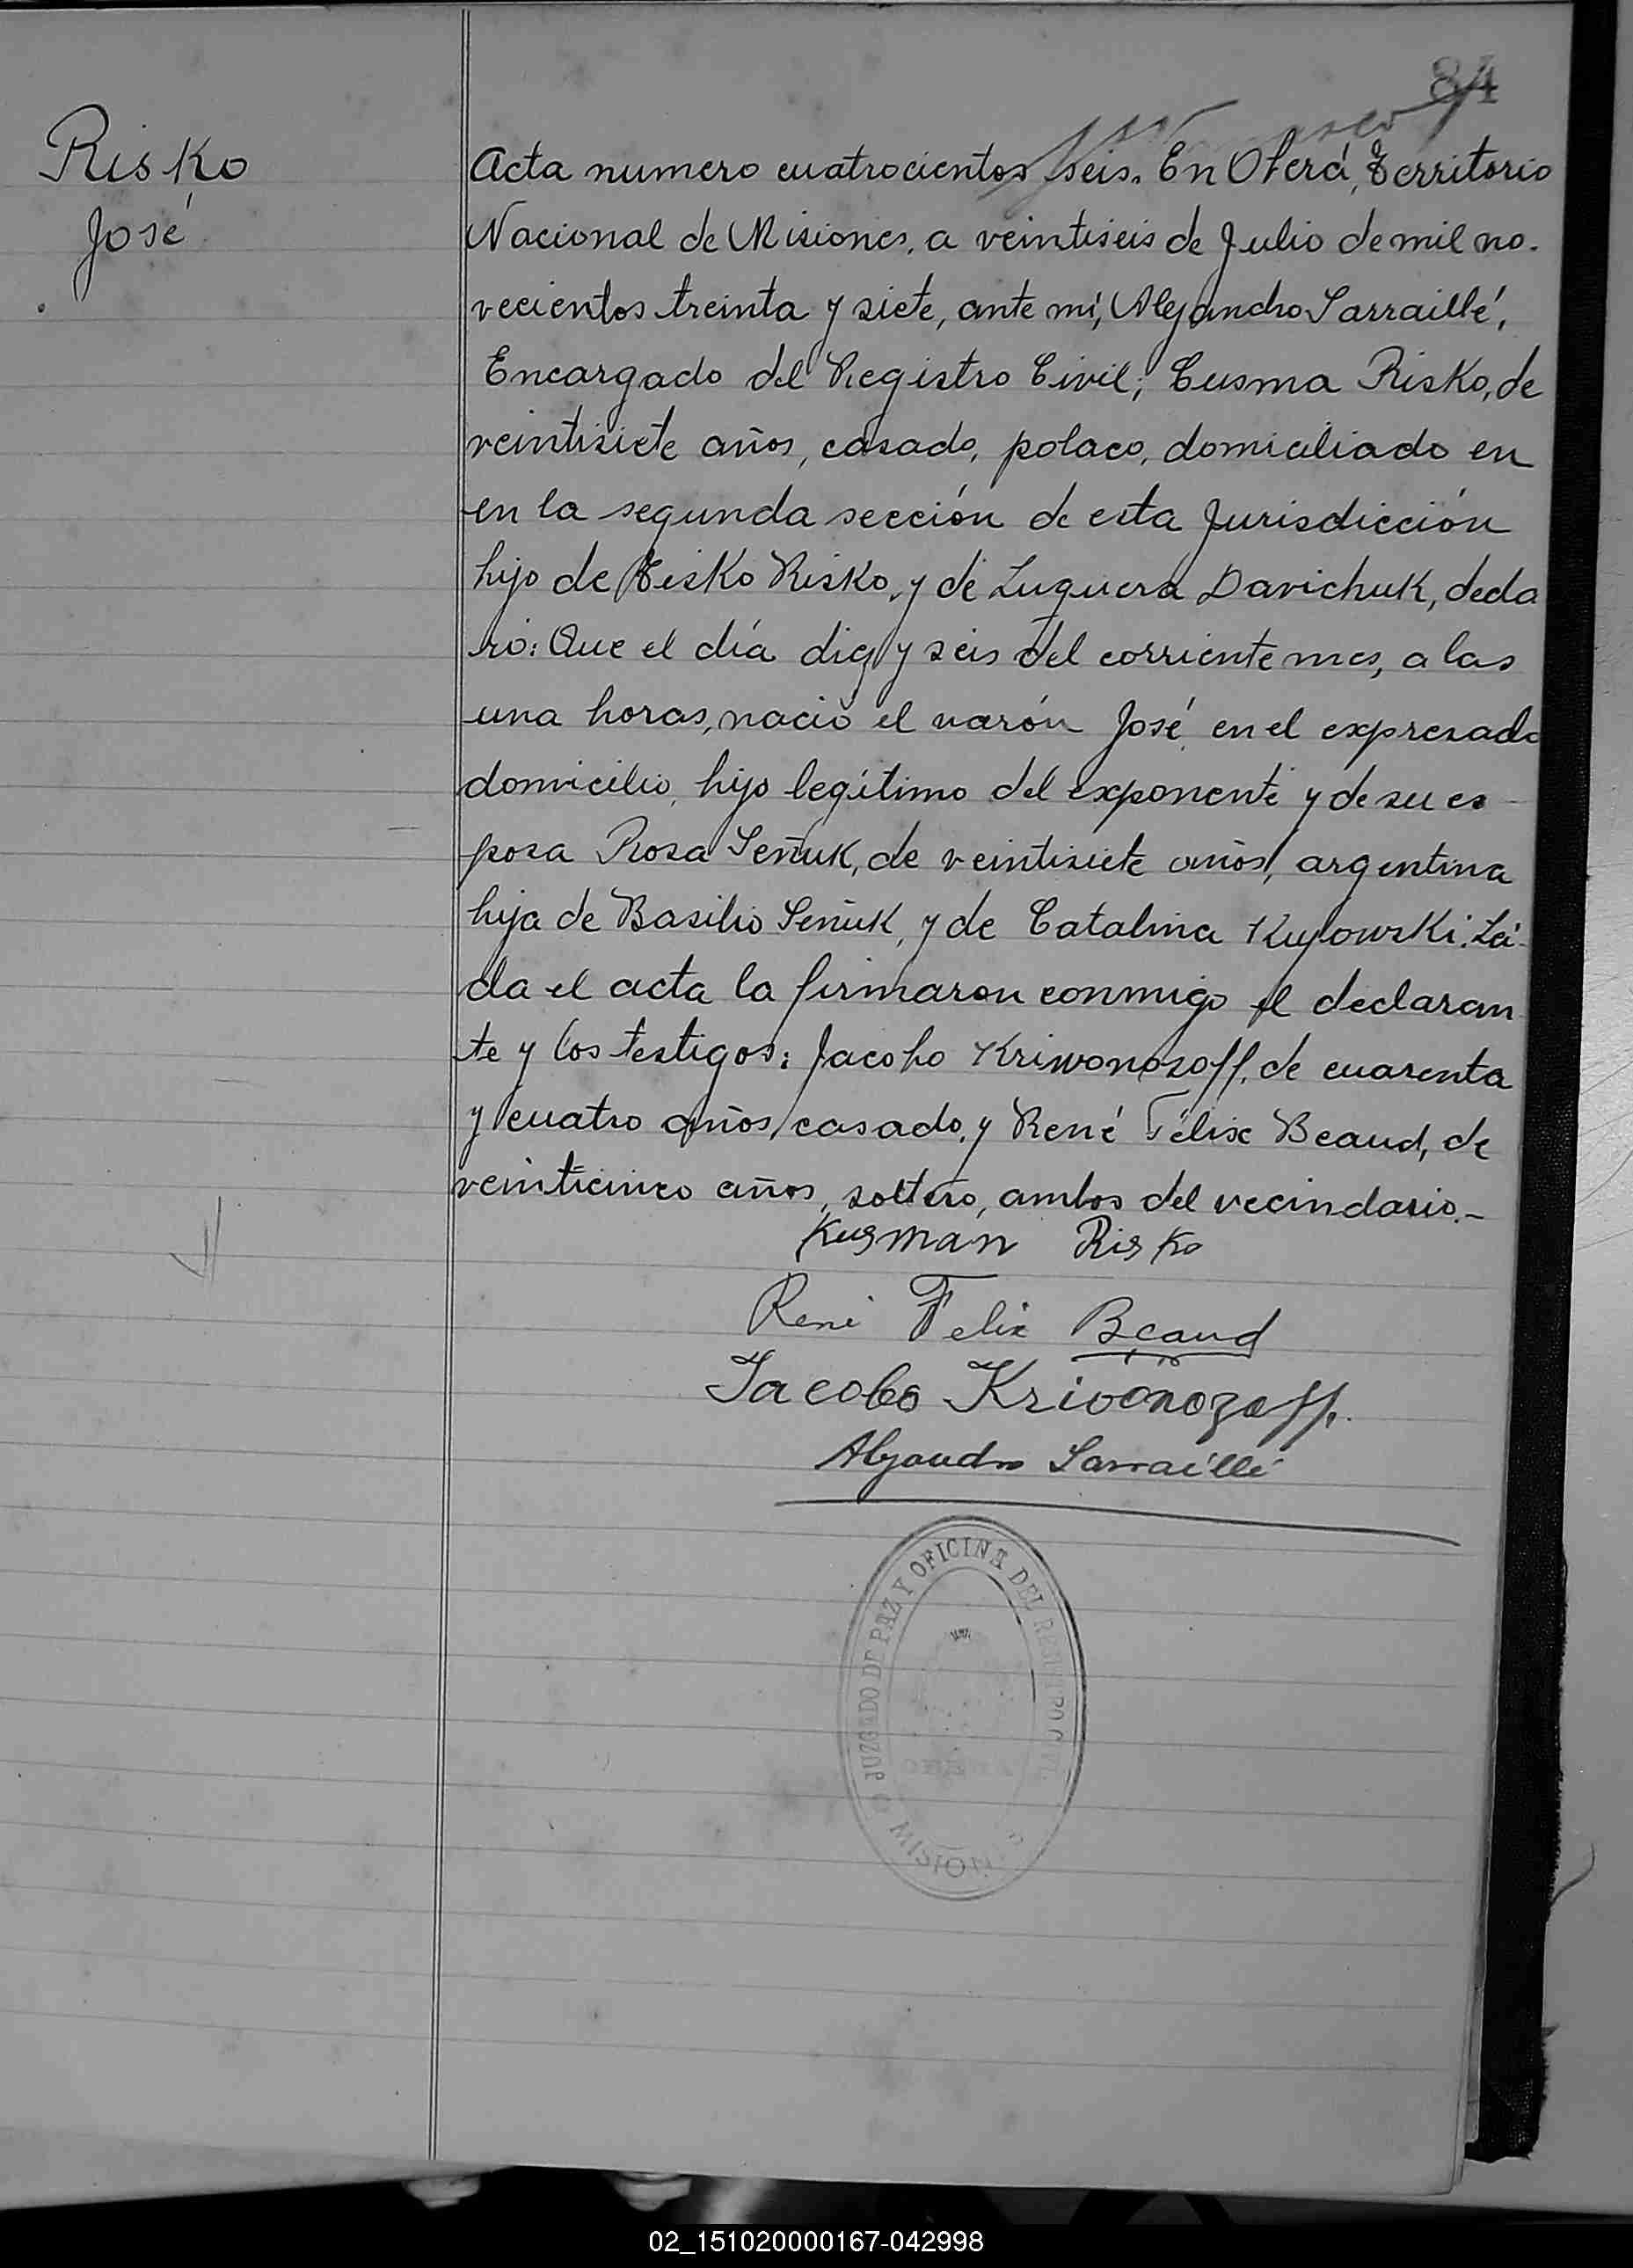 84
Risko
José
Acta numero cuatrocientos seis. En Oberá, Territorio
Nacional de Misiones, a veintiseis de Julio de mil no-
vecientos treinta y siete, ante mí, Alejandro Sarraillé,
Encargado del Registro Civil; Cusma Risko, de
veintisiete años, casado, polaco, domiciliado en
en la segunda sección de esta Jurisdicción
hijo de Risko, y de Luquera Davichuk, decla
ró: Que el día diez y seis del corriente mes, a las
una horas, nació el varón José en el expresado
domicilio, hijo legítimo del exponente y de su es-
posa Rosa Señuk, de veintisiete años, argentina
hija de Basilio Señuk, y de Catalina Leí-
da el acta la firmaron conmigo el declaran
te y los testigos: Jacobo Kriwonosoff, de cuarenta
y cuatro años, casado, y René Félix Beaud, de
veinticinco años, soltero, ambos del vecindario.-
Kusman Risko
René Felix Beaud
Jacobo Krivonozoff.
Alejandro Sarraillé
JUZGADO DE PAZ Y OFICINA DEL REGISTRO CIVIL
MISIONES
02_151020000167-042998